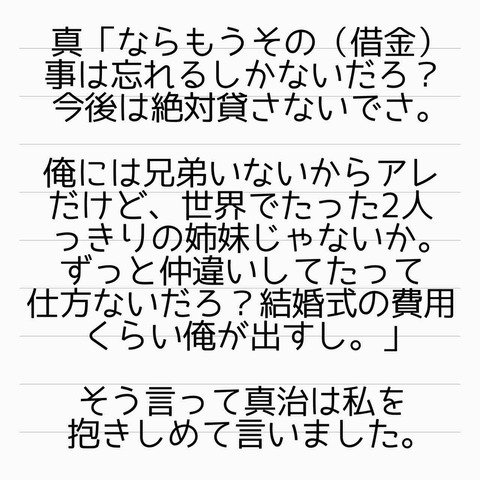 真「ならもうその（借金）
事は忘れるしかないだろ？
今後は絶対貸さないでさ。
俺には兄弟いないからアレ
だけど、世界でたった2人
っきりの姉妹じゃないか。
ずっと仲違いしてたって
仕方ないだろ？結婚式の費用
くらい俺が出すし。」
そう言って真治は私を
抱きしめて言いました。